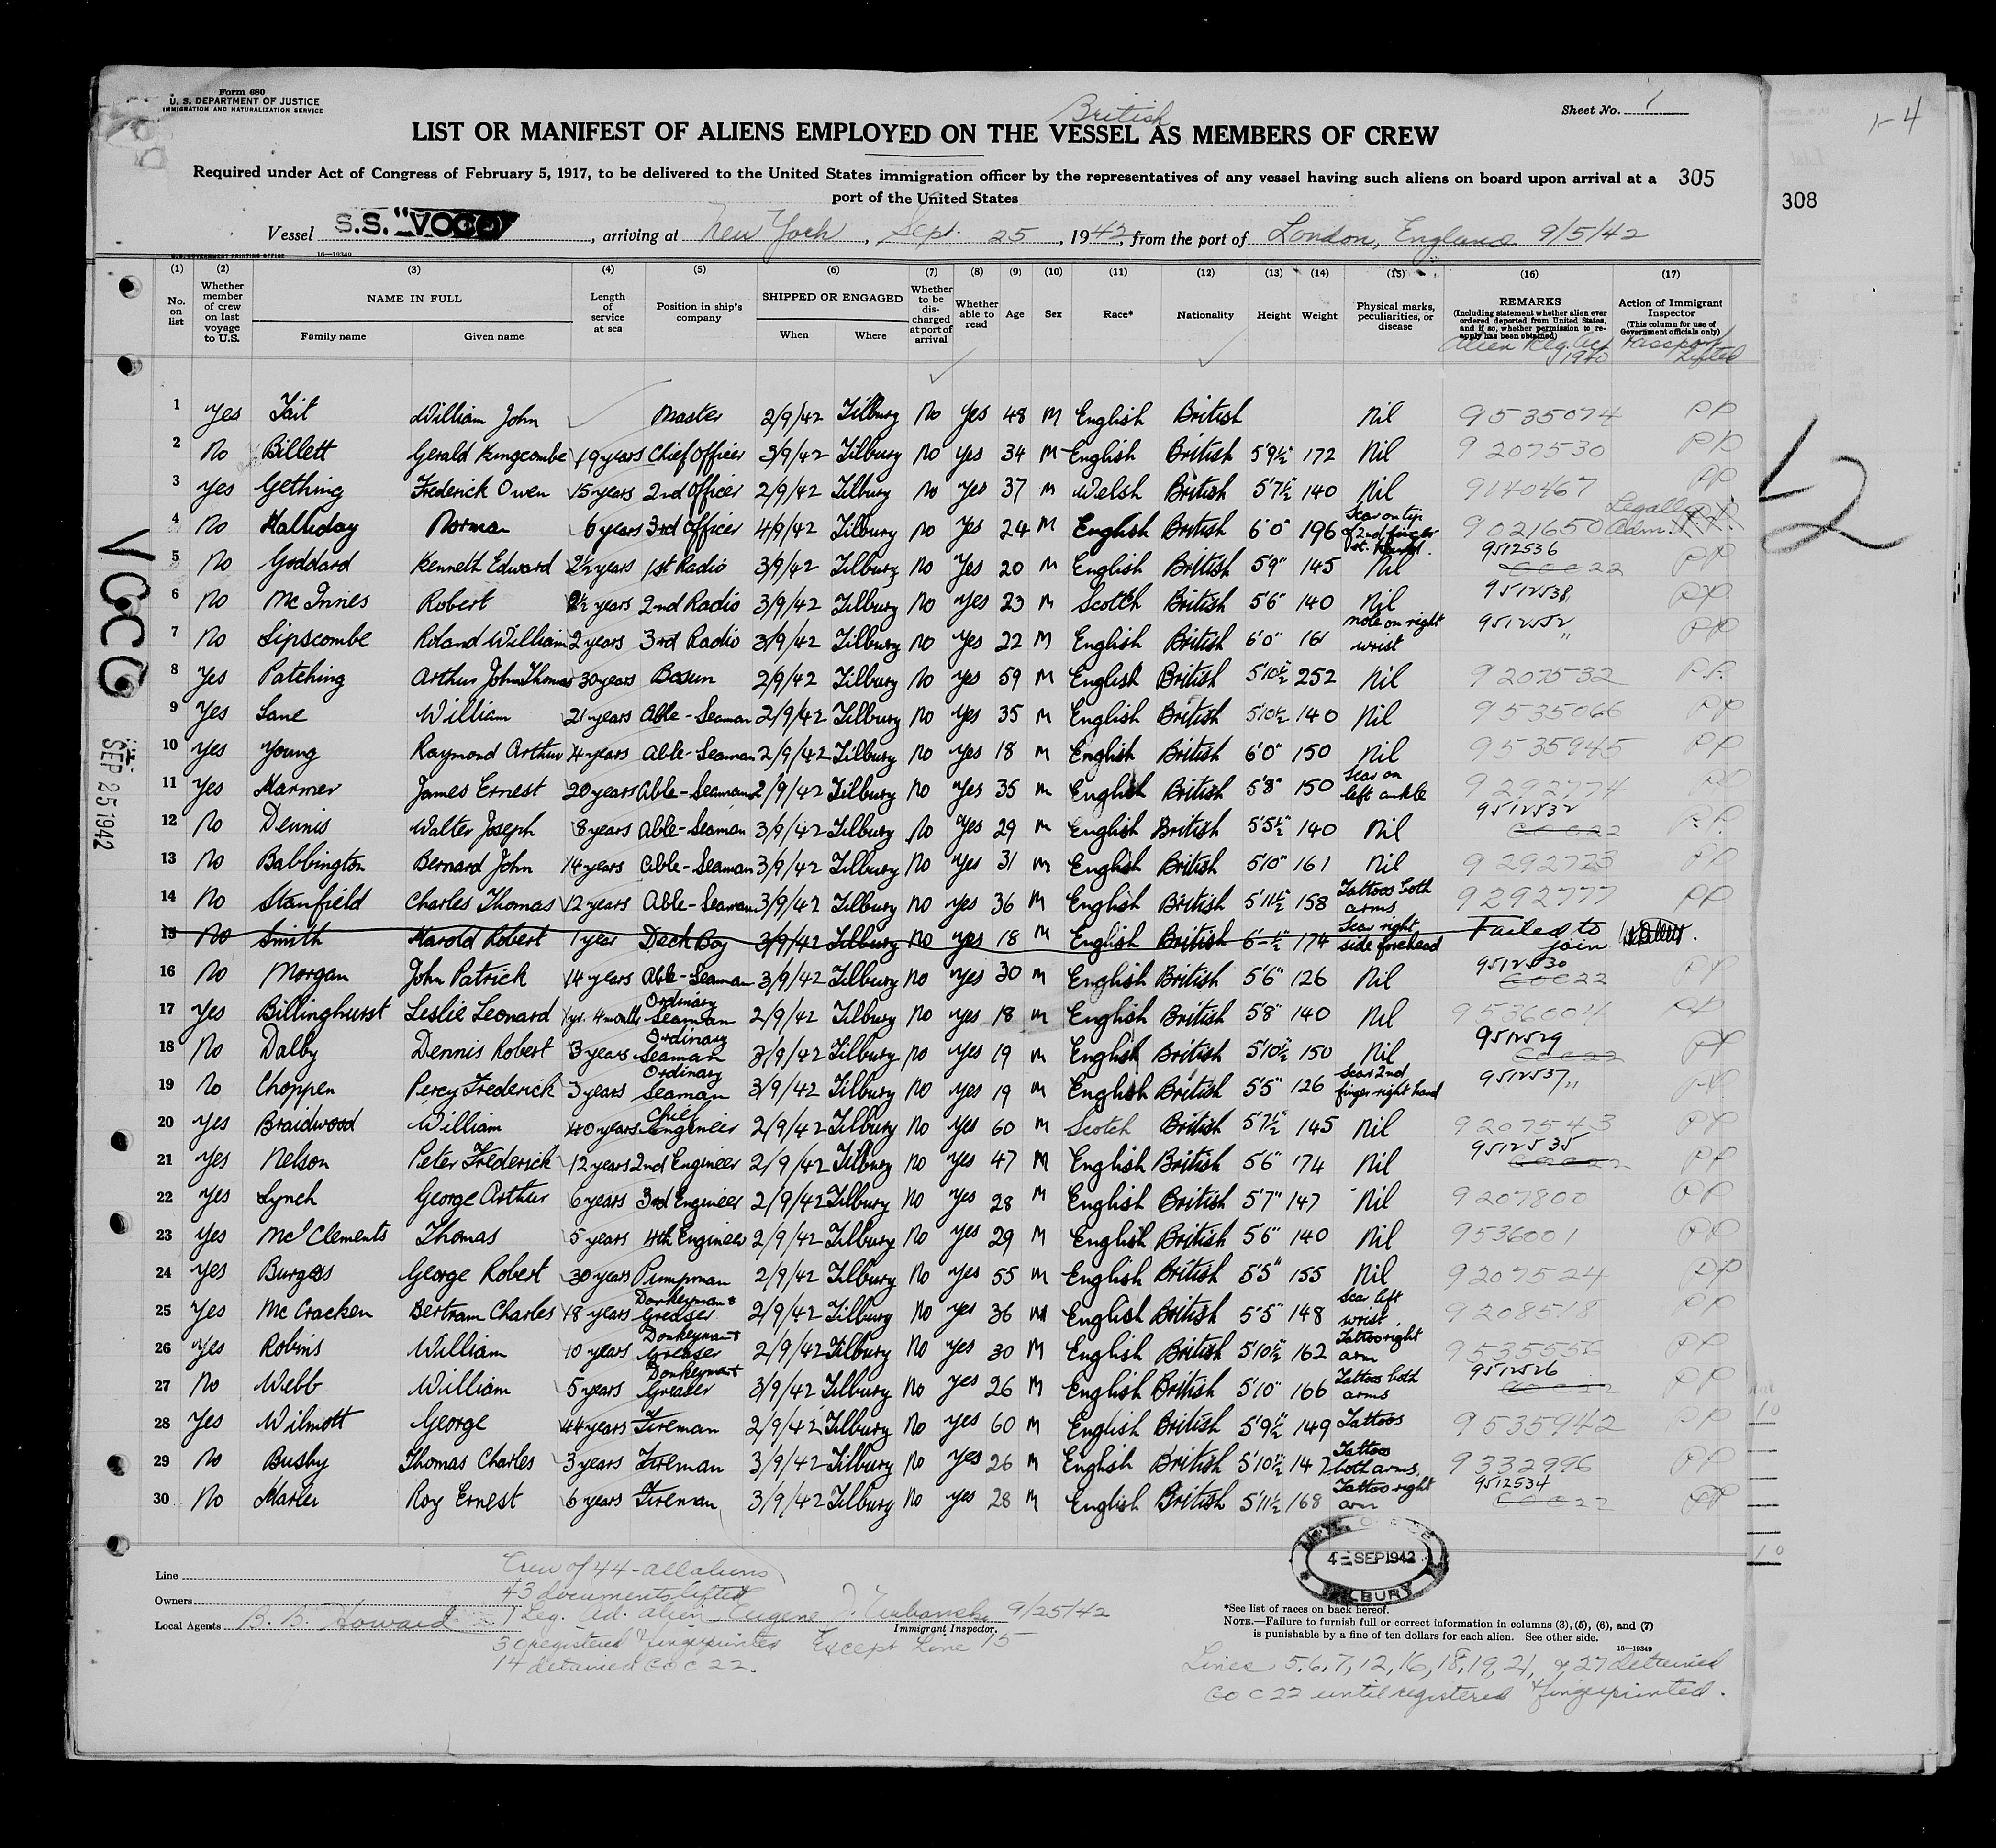 Form 680
U. S. DEPARTMENT OF JUSTICE
IMMIGRATION AND NATURALIZATION SERVICE
Sheet No. 1
1-4
British
LIST OR MANIFEST OF ALIENS EMPLOYED ON THE VESSEL AS MEMBERS OF CREW
Required under Act of Congress of February 5, 1917, to be delivered to the United States immigration officer by the representatives of any vessel having such aliens on board upon arrival at a
port of the United States
305
308
Vessel S.S. "VOCO", arriving at New York, Sept. 25, 1942, from the port of London, England 9/5/42
U. S. GOVERNMENT PRINTING OFFICE 16—19349
(1) (2) (3) (4) (5) (6) (7) (8) (9) (10) (11) (12) (13) (14) (15) (16) (17)
No. on list
Whether member of crew on last voyage to U.S.
NAME IN FULL
Family name Given name
Length of service at sea
Position in ship's company
SHIPPED OR ENGAGED
When Where
Whether to be discharged at port of arrival
Whether able to read
Age Sex Race* Nationality Height Weight
Physical marks, peculiarities, or disease
REMARKS
(Including statement whether alien ever ordered deported from United States, and if so, whether permission to reapply has been obtained)
Alien Reg. Act 1940
Action of Immigrant Inspector
(This column for use of Government officials only)
Passport lifted
1 Yes Tait William John Master 2/9/42 Tilbury No Yes 48 M English British Nil 9535074 PP
2 No Billett Gerald Kingcombe 19 years Chief Officer 3/9/42 Tilbury No Yes 34 M English British 5'9½" 172 Nil 9207530 PP
3 Yes Gething Frederick Owen 15 years 2nd Officer 2/9/42 Tilbury No Yes 37 M Welsh British 5'7½" 140 Nil 9140467 PP
4 No Halliday Norman 6 years 3rd Officer 4/9/42 Tilbury No Yes 24 M English British 6'0" 196 Scar on tip of 2nd finger rt. hand. 9021650 Legally Adm.
5 No Goddard Kenneth Edward 2½ years 1st Radio 3/9/42 Tilbury No Yes 20 M English British 5'9" 145 Nil 9512536 COC 22 PP
6 No McInnes Robert 2½ years 2nd Radio 3/9/42 Tilbury No Yes 23 M Scotch British 5'6" 140 Nil 9512538 PP
7 No Lipscombe Roland William 2 years 3rd Radio 3/9/42 Tilbury No Yes 22 M English British 6'0" 161 mole on right wrist 9512552 " PP
8 Yes Patching Arthur John Thomas 30 years Bosun 2/9/42 Tilbury No Yes 59 M English British 5'10½" 252 Nil 9207532 PP
9 Yes Lane William 21 years Able-Seaman 2/9/42 Tilbury No Yes 35 M English British 5'10½" 140 Nil 9535066 PP
10 Yes Young Raymond Arthur 4 years Able-Seaman 2/9/42 Tilbury No Yes 18 M English British 6'0" 150 Nil 9535945 PP
11 Yes Marmer James Ernest 20 years Able-Seaman 2/9/42 Tilbury No Yes 35 M English British 5'8" 150 Scar on left ankle 9292774 PP
12 No Dennis Walter Joseph 8 years Able-Seaman 3/9/42 Tilbury No Yes 29 M English British 5'5½" 140 Nil 9512532 COC 22 PP
13 No Babbington Bernard John 14 years Able-Seaman 3/9/42 Tilbury No Yes 31 M English British 5'10" 161 Nil 9292723 PP
14 No Stanfield Charles Thomas 12 years Able-Seaman 3/9/42 Tilbury No Yes 36 M English British 5'11½" 158 Tattoos both arms 9292777 PP
15 No Smith Harold Robert 1 year Deck Boy 3/9/42 Tilbury No Yes 18 M English British 6'-½" 174 Scar right side forehead Failed to join
16 No Morgan John Patrick 14 years Able-Seaman 3/9/42 Tilbury No Yes 30 M English British 5'6" 126 Nil 9512530 COC 22 PP
17 Yes Billinghurst Leslie Leonard 1 yr. 4 months Ordinary Seaman 2/9/42 Tilbury No Yes 18 M English British 5'8" 140 Nil 9536004 PP
18 No Dalby Dennis Robert 3 years Ordinary Seaman 3/9/42 Tilbury No Yes 19 M English British 5'10½" 150 Nil 9512529 COC 22 PP
19 No Choppen Percy Frederick 3 years Ordinary Seaman 3/9/42 Tilbury No Yes 19 M English British 5'5" 126 Scar 2nd finger right hand 9512537 " PP
20 Yes Braidwood William 40 years Chief Engineer 2/9/42 Tilbury No Yes 60 M Scotch British 5'7½" 145 Nil 9207543 PP
21 Yes Nelson Peter Frederick 12 years 2nd Engineer 2/9/42 Tilbury No Yes 47 M English British 5'6" 174 Nil 9512535 COC 22 PP
22 Yes Lynch George Arthur 6 years 3rd Engineer 2/9/42 Tilbury No Yes 28 M English British 5'7" 147 Nil 9207800 PP
23 Yes McClements Thomas 5 years 4th Engineer 2/9/42 Tilbury No Yes 29 M English British 5'6" 140 Nil 9536001 PP
24 Yes Burgess George Robert 30 years Pumpman 2/9/42 Tilbury No Yes 55 M English British 5'5" 155 Nil 9207524 PP
25 Yes McCracken Bertram Charles 18 years Donkeyman & Greaser 2/9/42 Tilbury No Yes 36 M English British 5'5" 148 Scar left wrist 9208518 PP
26 Yes Robins William 10 years Donkeyman & Greaser 2/9/42 Tilbury No Yes 30 M English British 5'10½" 162 Tattoo right arm 9535556 PP
27 No Webb William 5 years Donkeyman & Greaser 3/9/42 Tilbury No Yes 26 M English British 5'10" 166 Tattoos both arms 9512526 COC 22 PP
28 Yes Wilmott George 44 years Fireman 2/9/42 Tilbury No Yes 60 M English British 5'9½" 149 Tattoos 9535942 PP
29 No Busby Thomas Charles 3 years Fireman 3/9/42 Tilbury No Yes 26 M English British 5'10½" 147 Tattoos both arms. 9332996 PP
30 No Marler Roy Ernest 6 years Fireman 3/9/42 Tilbury No Yes 28 M English British 5'11½" 168 Tattoo right arm 9512534 COC 22 PP
VOCO
SEP 25 1942
42
4-SEP 1942
TILBURY
Line
Owners
Local Agents B. B. Howard
Crew of 44 - all aliens
43 documents lifted
1 Leg. Ad. alien
30 registered & fingerprinted Except Line 15
14 detained COC 22.
9/25/42
Immigrant Inspector.
*See list of races on back hereof.
NOTE.—Failure to furnish full or correct information in columns (3), (5), (6), and (7)
is punishable by a fine of ten dollars for each alien. See other side.
16—19349
Lines 5,6,7,12,16,18,19,21, & 27 detained
COC 22 until registered & fingerprinted.